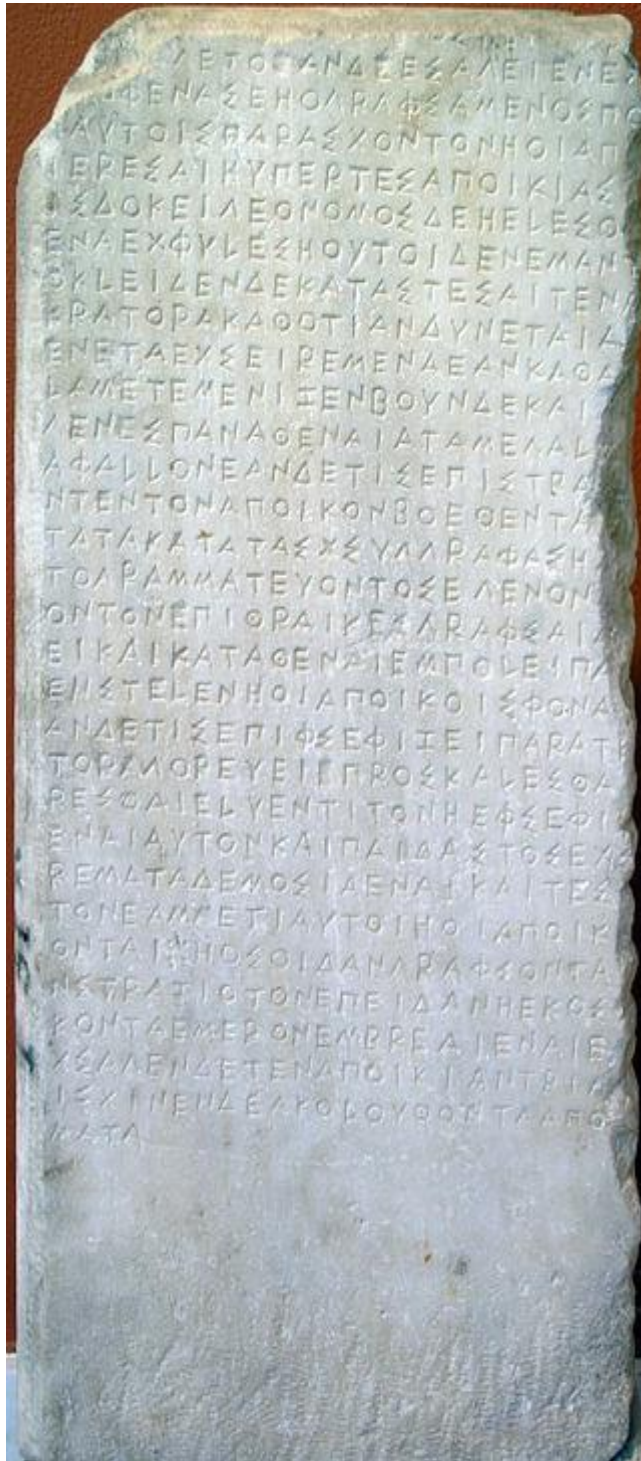 ΓΕΤΟΕΑΝΔΕΕΣΑΓΕΙΕΝΕΧ
ΦΕΝΑΣΕΗΟΓΡΑΦΣΑΜΕΝΟΣΠΟ
ΑΥΤΟΙΣΠΑΡΑΣΧΟΝΤΟΝΗΟΙΑΠ
ΙΕΡΕΣΑΙΗΥΠΕΡΤΕΣΑΠΟΙΚΙΑΣ
ΟΣΔΟΚΕΙΓΕΟΝΟΜΟΣΔΕΗΕΛΕΣΘΑ
ΕΝΑΕΧΦΥΛΕΣΗΟΥΤΟΙΔΕΝΕΜΑΝΤ
ΟΚΛΕΙΔΕΝΔΕΚΑΤΑΣΤΕΣΑΙΤΕΝΑ
ΚΡΑΤΟΡΑΚΑΘΟΤΙΑΝΔΥΝΕΤΑΙΑ
ΕΝΕΤΑΕΧΣΕΙΡΕΜΕΝΑΕΑΝΚΑΘΑ
ΛΑΜΕΤΕΜΕΝΙΖΕΝΒΟΥΝΔΕΚΑΙ
ΓΕΝΕΣΠΑΝΑΘΕΝΑΙΑΤΑΜΕΓΑΛ
ΑΦΑΛΛΟΝΕΑΝΔΕΤΙΣΕΠΙΣΤΡΑ
ΝΤΕΝΤΟΝΑΠΟΙΚΟΝΒΟΕΘΕΝΤΑ
ΤΑΤΑΚΑΤΑΤΑΣΧΣΥΓΓΡΑΦΑΣΗ
ΤΟΓΡΑΜΜΑΤΕΥΟΝΤΟΣΕΓΕΝΟΝ
ΟΝΤΟΝΕΠΙΘΡΑΙΚΕΣΓΡΑΦΣΑΙΔ
ΕΙΚΑΙΚΑΤΑΘΕΝΑΙΕΜΠΟΛΕΙΠΑ
ΕΝΣΤΕΛΕΝΗΟΙΑΠΟΙΚΟΙΣΦΟΝΑ
ΑΝΔΕΤΙΣΕΠΙΦΣΕΦΙΖΕΙΠΑΡΑΤΕ
ΤΟΡΑΓΟΡΕΥΕΙΕΠΡΟΣΚΑΛΕΣΘΑ
ΡΕΣΘΑΙΕΛΥΕΝΤΙΤΟΝΗΕΦΣΕΦΙ
ΕΝΑΙΑΥΤΟΝΚΑΙΠΑΙΔΑΣΤΟΣΕΧΣ
ΡΕΜΑΤΑΔΕΜΟΣΙΑΕΝΑΙΚΑΙΤΕΣ
ΤΟΝΕΑΜΜΕΤΙΑΥΤΟΙΗΟΙΑΠΟΙΚ
ΟΝΤΑΙΗΟΣΟΙΔΑΝΓΡΑΦΣΟΝΤΑ
ΝΣΤΡΑΤΙΟΤΟΝΕΠΕΙΔΑΝΗΕΚΟΣ
ΚΟΝΤΑΕΜΕΡΟΝΕΜΒΡΕΑΙΕΝΑΙΕ
ΧΣΑΓΕΝΔΕΤΕΝΑΠΟΙΚΙΑΝΤΡΙΑ
ΙΣΧΙΝΕΝΔΕΑΚΟΛΟΥΘΟΝΤΑΑΠΟ
ΜΑΤΑ